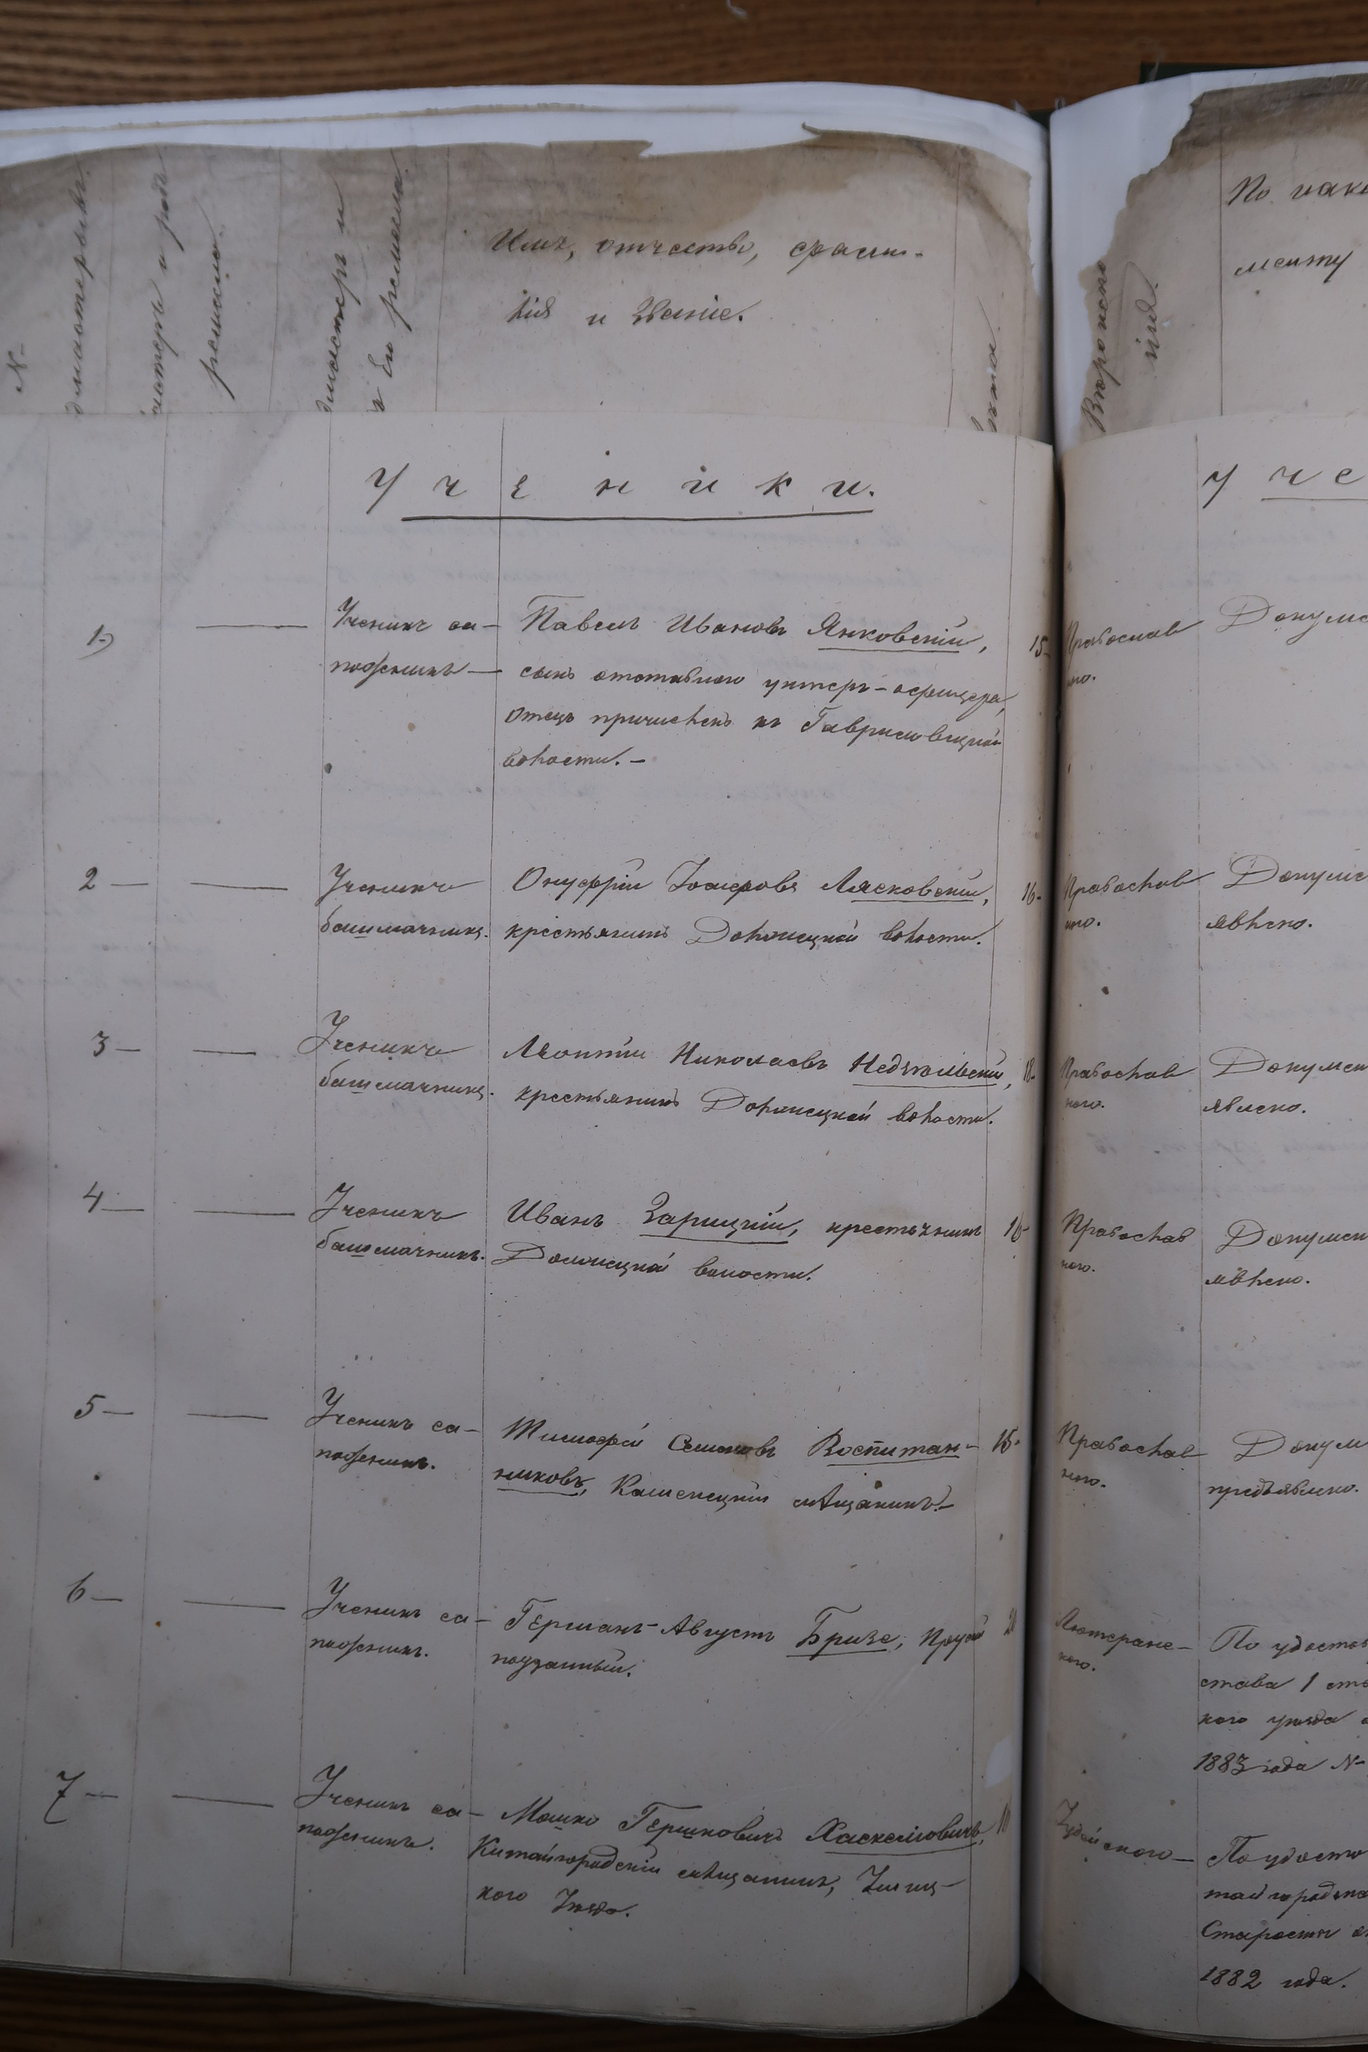 №
Имя, отчество, фами-
лія и званіе.
Вѣроиспо
По как
менту
Ученики.
У ч е
1)
Ученикъ са-
пожникъ —
Павелъ Ивановъ Янковскій,
сынъ отставного унтеръ-офицера,
отецъ причисленъ къ
волости. —
15-
Православ
ного.
Докуме
2 —
Ученикъ
башмачникъ.
Онуфрій Лясковскій,
крестьянинъ Должецкой волости.
16-
Православ
ного.
Докуме
явлено.
3 —
Ученикъ
башмачникъ.
Леонтій Николаевъ Недѣльскій,
крестьянинъ Должецкой волости.
18-
Православ
ного.
Докумен
явлено.
4 —
Ученикъ
башмачникъ.
Иванъ Зарицкій, крестьянинъ
Должецкой волости.
16-
Православ
ного.
Докумен
явлено.
5 —
Ученикъ са-
пожникъ.
Тимофей Воспитан-
никовъ, Каменецкій мѣщанинъ. —
15-
Православ
ного.
Докум
предъявлено.
6 —
Ученикъ са-
пожникъ.
Германъ-Августъ Бризе, Прусск
подданный.
Лютеранс-
кого.
По удостов
става 1 ста
кого уѣзда
1883 года №
7 —
Ученикъ са-
пожникъ.
Мошко Гершковичъ Хаскелевичъ,
Китайгородскій мѣщанинъ, Ушиц-
кого Уѣзда.
Іудейского —
По удосто
тайгородско
Старосты
1882 года.